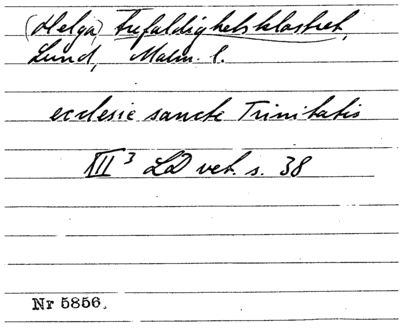 (Helga) trefaldighetsklostret,
Lund, Malm. l.
ecclesie sancte Trinitatis
XII³ LD vet. s. 38
Nr 5856.